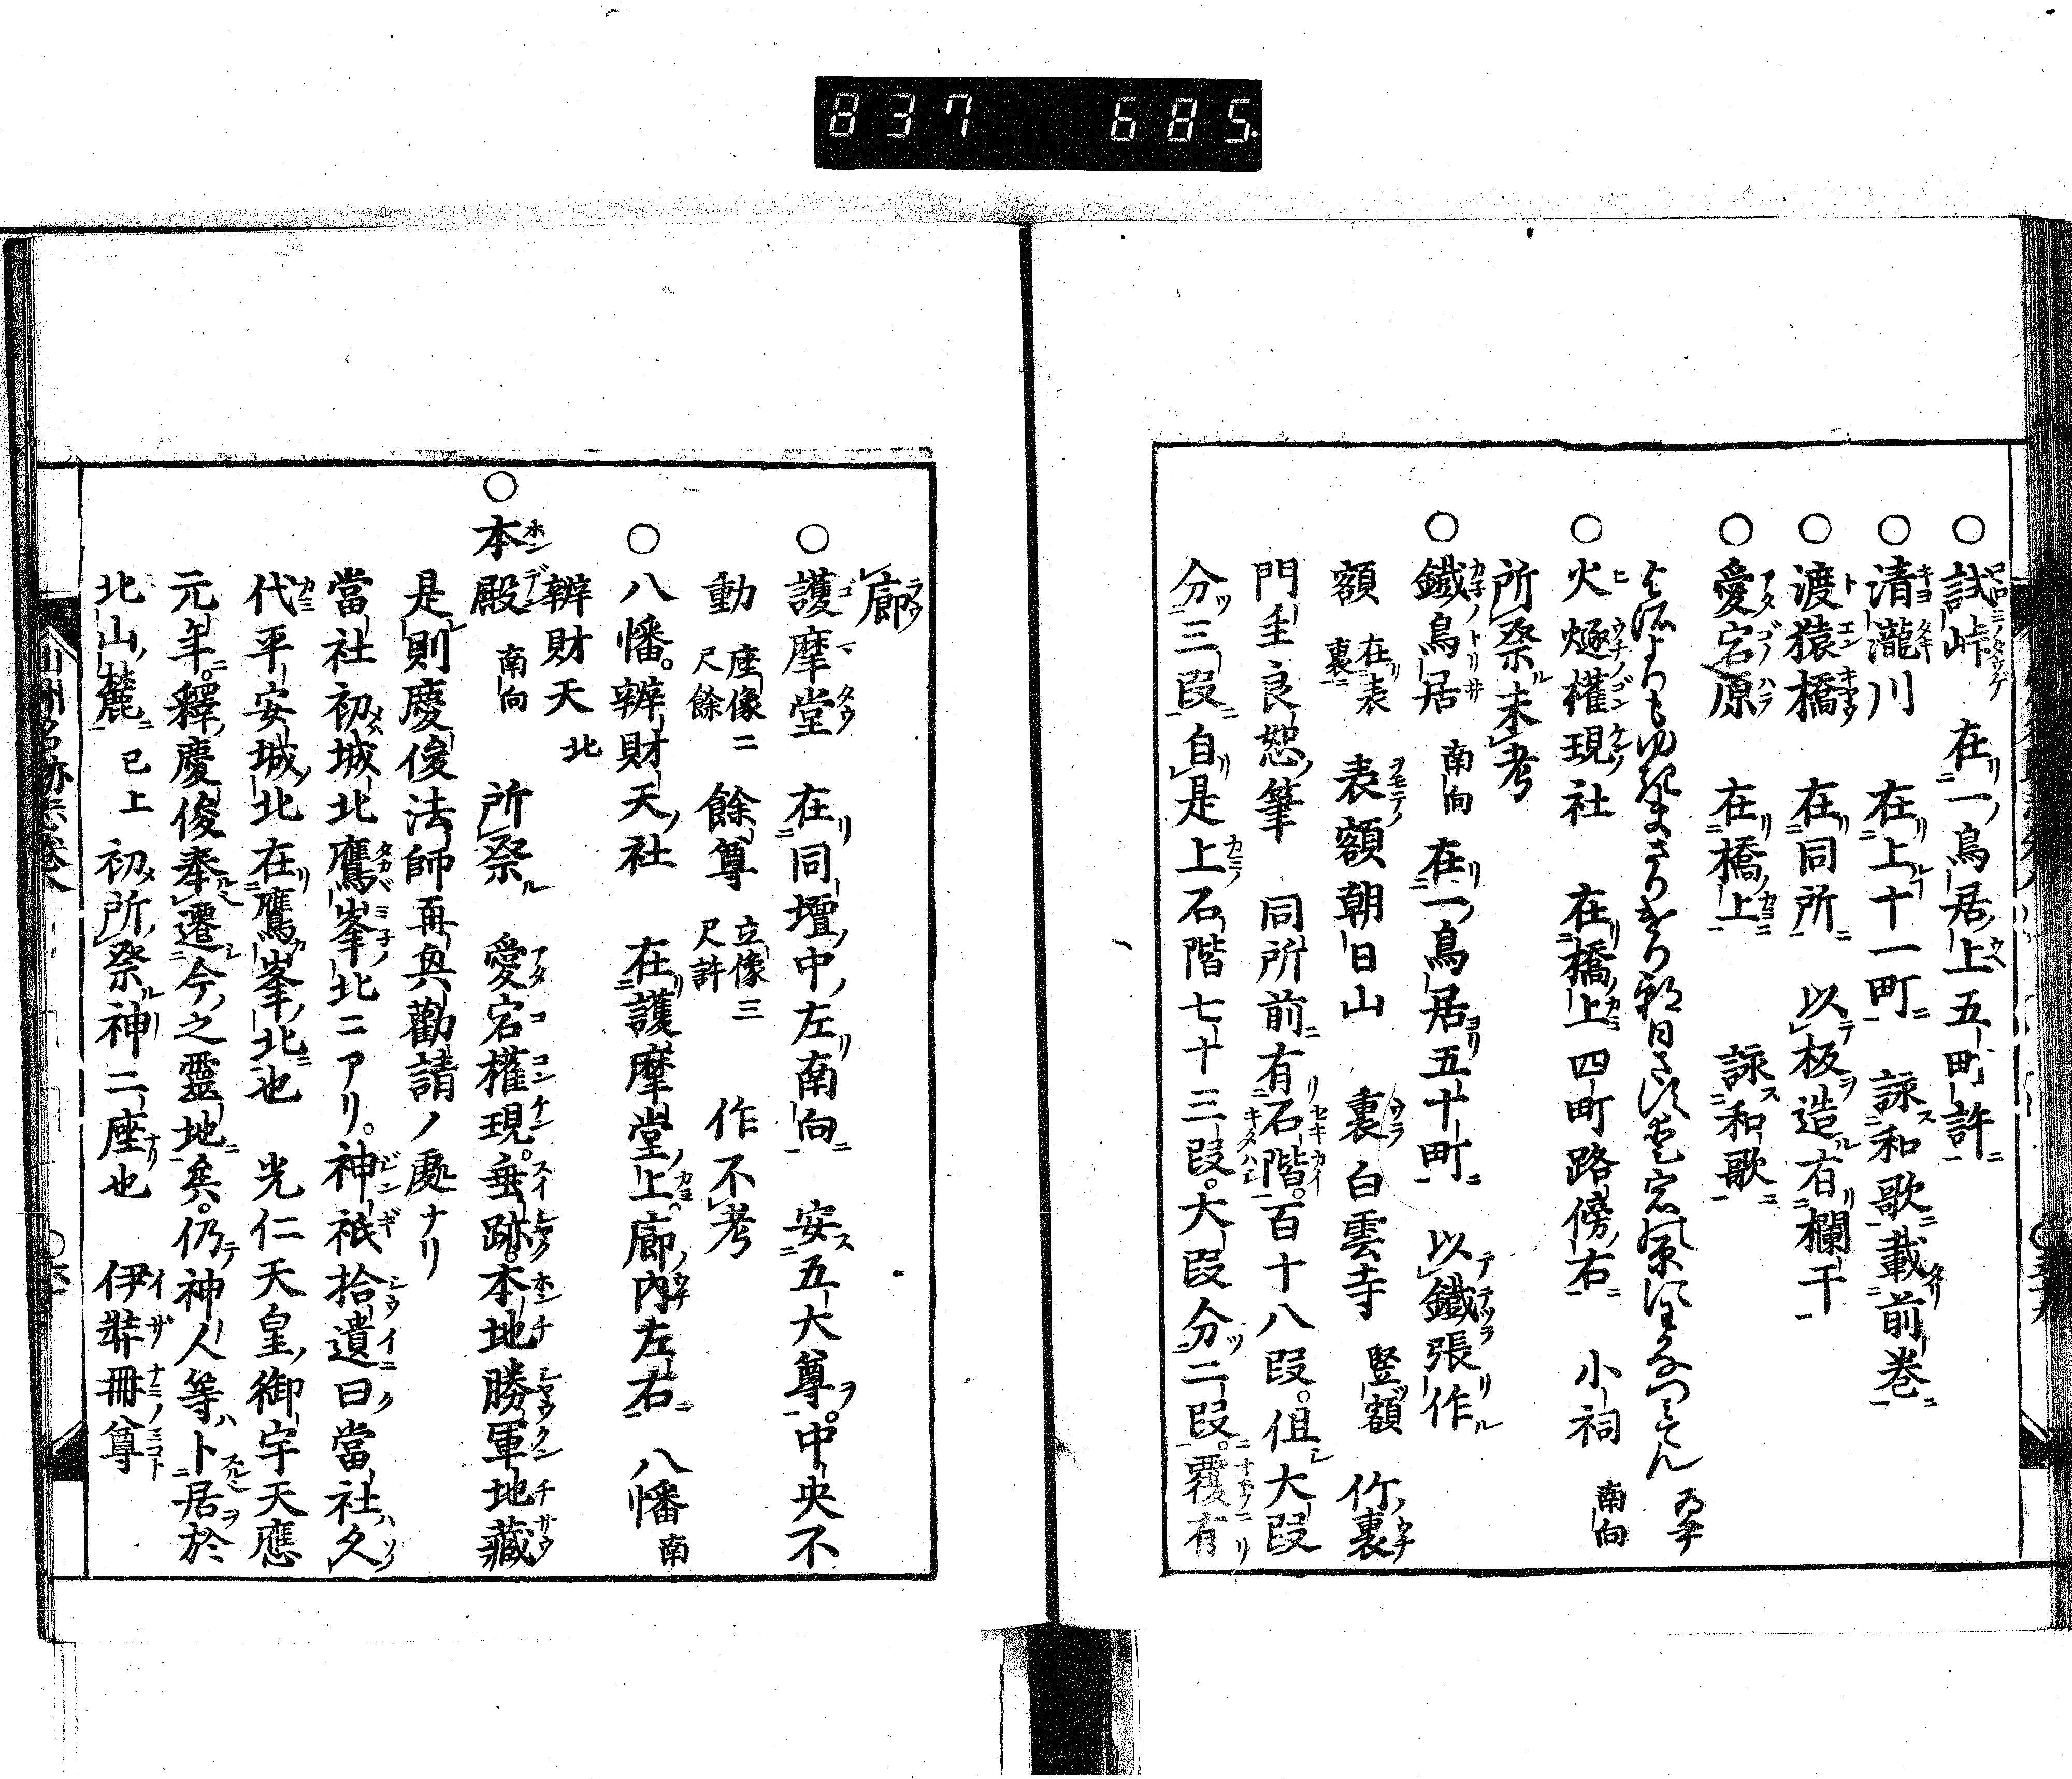 837 685
○試峠 在一鳥居上五町許
○清瀧川 在上十一町 詠和歌載前巻
○渡猿橋 在同所 以板造有欄干
○愛宕原 在橋上 詠和歌
○火燧權現社 在橋上四町路傍右 小祠 南向
所祭未考
○鐵鳥居 南向 在一鳥居五十町 以鐵張作
額 在表裏 表額朝日山 裏白雲寺 竪額 竹裏
門主良恕筆 同所前有石階百十八段。但大段
分三段自是上石階七十三段。大段分二段。覆有
廊
○護摩堂 在同壇中左南向 安五大尊。中央不
動 座像二尺餘 餘尊 立像三尺許 作不考
○八幡。辨財天社 在護摩堂上。廊内左右 八幡 南
辨財天 北
○本殿 南向 所祭 愛宕權現。垂跡。本地勝軍地藏
是則慶俊法師再興勸請ノ處ナリ
當社初城北鷹峯北ニアリ。神祇拾遺曰當社久
代平安城北在鷹峯北也 光仁天皇御宇天應
元年。釋慶俊奉遷今之靈地矣。仍神人等ハト居於
北山麓 已上 初所祭神二座也 伊弉冊尊